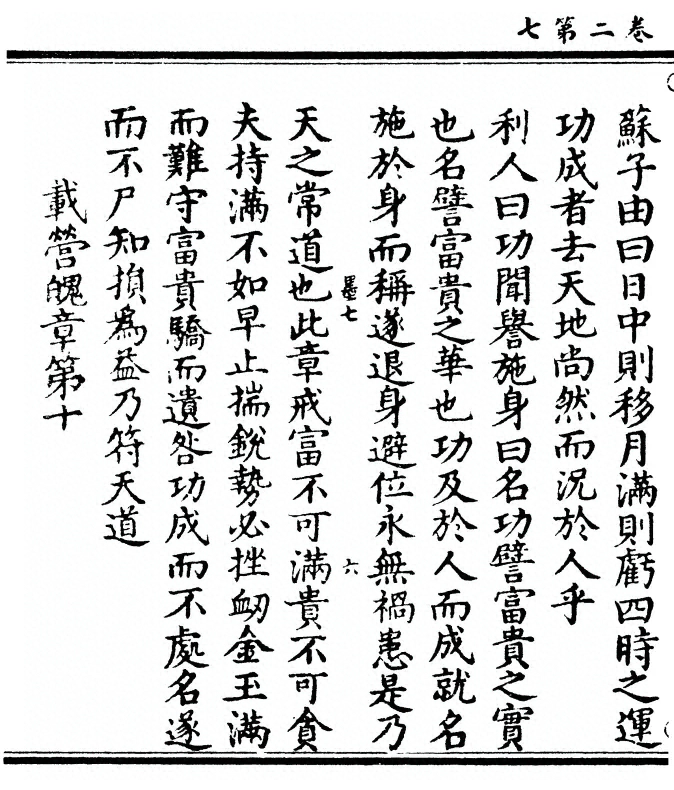 卷二第七
蘇子由曰日中則移月滿則虧四時之運
功成者去天地尚然而況於人乎
利人曰功聞譽施身曰名功譬富貴之實
也名譬富貴之華也功及於人而成就名
施於身而稱遂退身避位永無禍患是乃
墨七
六
天之常道也此章戒富不可滿貴不可貪
夫持滿不如早止揣銳勢必挫衂金玉滿
而難守富貴驕而遺咎功成而不處名遂
而不尸知損爲益乃符天道
載營魄章第十